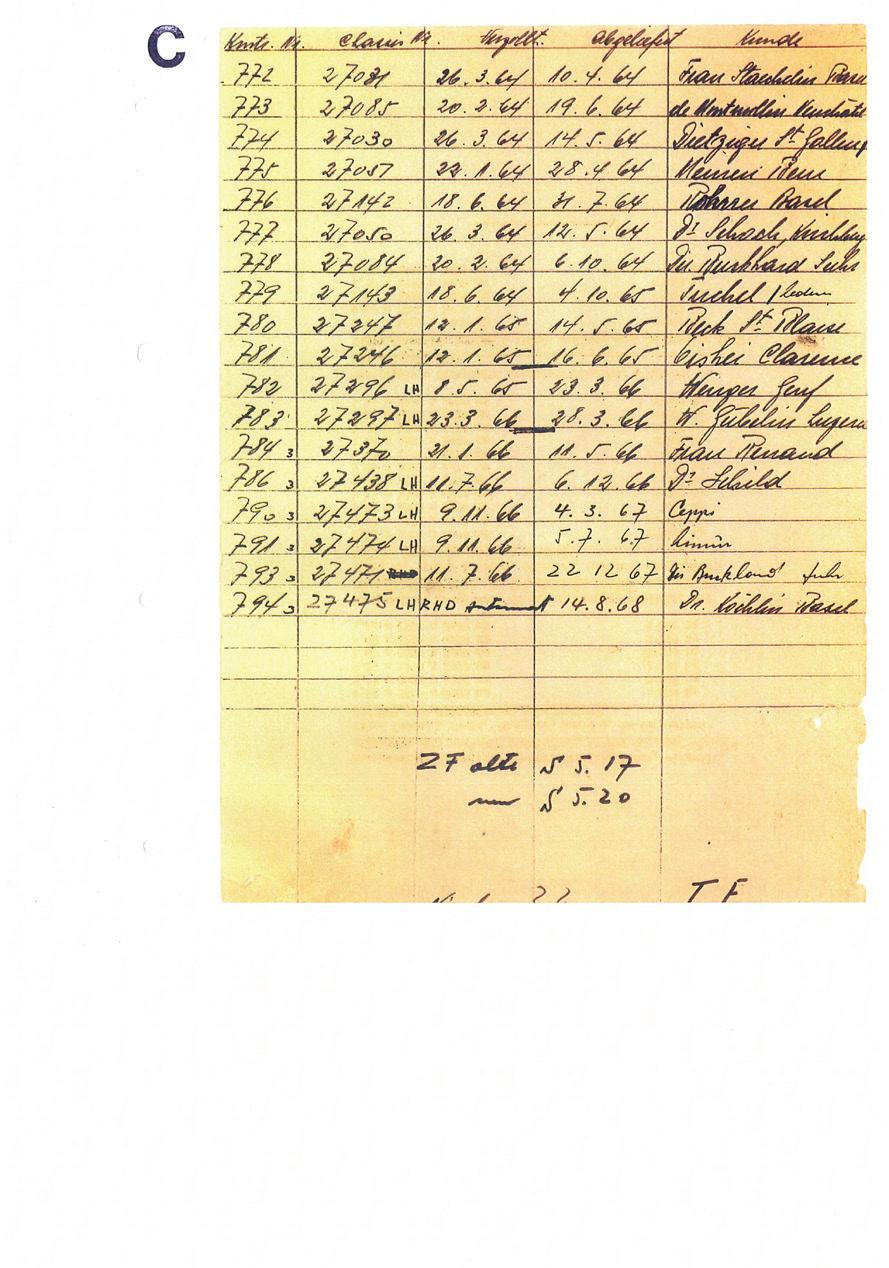 C
Chassis Nr. Verzollt. Abgeliefert Kunde
772 27081 26.3.64 10.4.64 Frau Staechelin
773 27085 20.2.64 19.6.64 de Montmollin
774 27030 26.3.64 14.5.64 St Gallen
775 27057 22.1.64 28.4.64
776 27142 18.6.64 31.7.64 Rohrer Basel
777 27050 26.3.64 12.5.64 Dr Schoch,
778 27084 20.2.64 6.10.64 Burkhard
779 27143 18.6.64 4.10.65
780 27247 12.1.65 14.5.65 Beck St. Blaise
781 27246 12.1.65 16.6.65
782 27296 LH 8.5.65 23.3.66 Wenger Genf
783 27297 LH 23.3.66 28.3.66 W. Gübelin
784 3 27370 21.1.66 11.5.66 Frau Renaud
786 3 27438 LH 11.7.66 6.12.66 Dr Schild
790 3 27473 LH 9.11.66 4.3.67 Ceppi
791 3 27474 LH 9.11.66 5.7.67
793 3 27471 11.7.66 22 12 67
794 3 27475 LH RHD 14.8.68 Dr. Köchlin Basel
ZF alte S 5.17
neue S 5.20